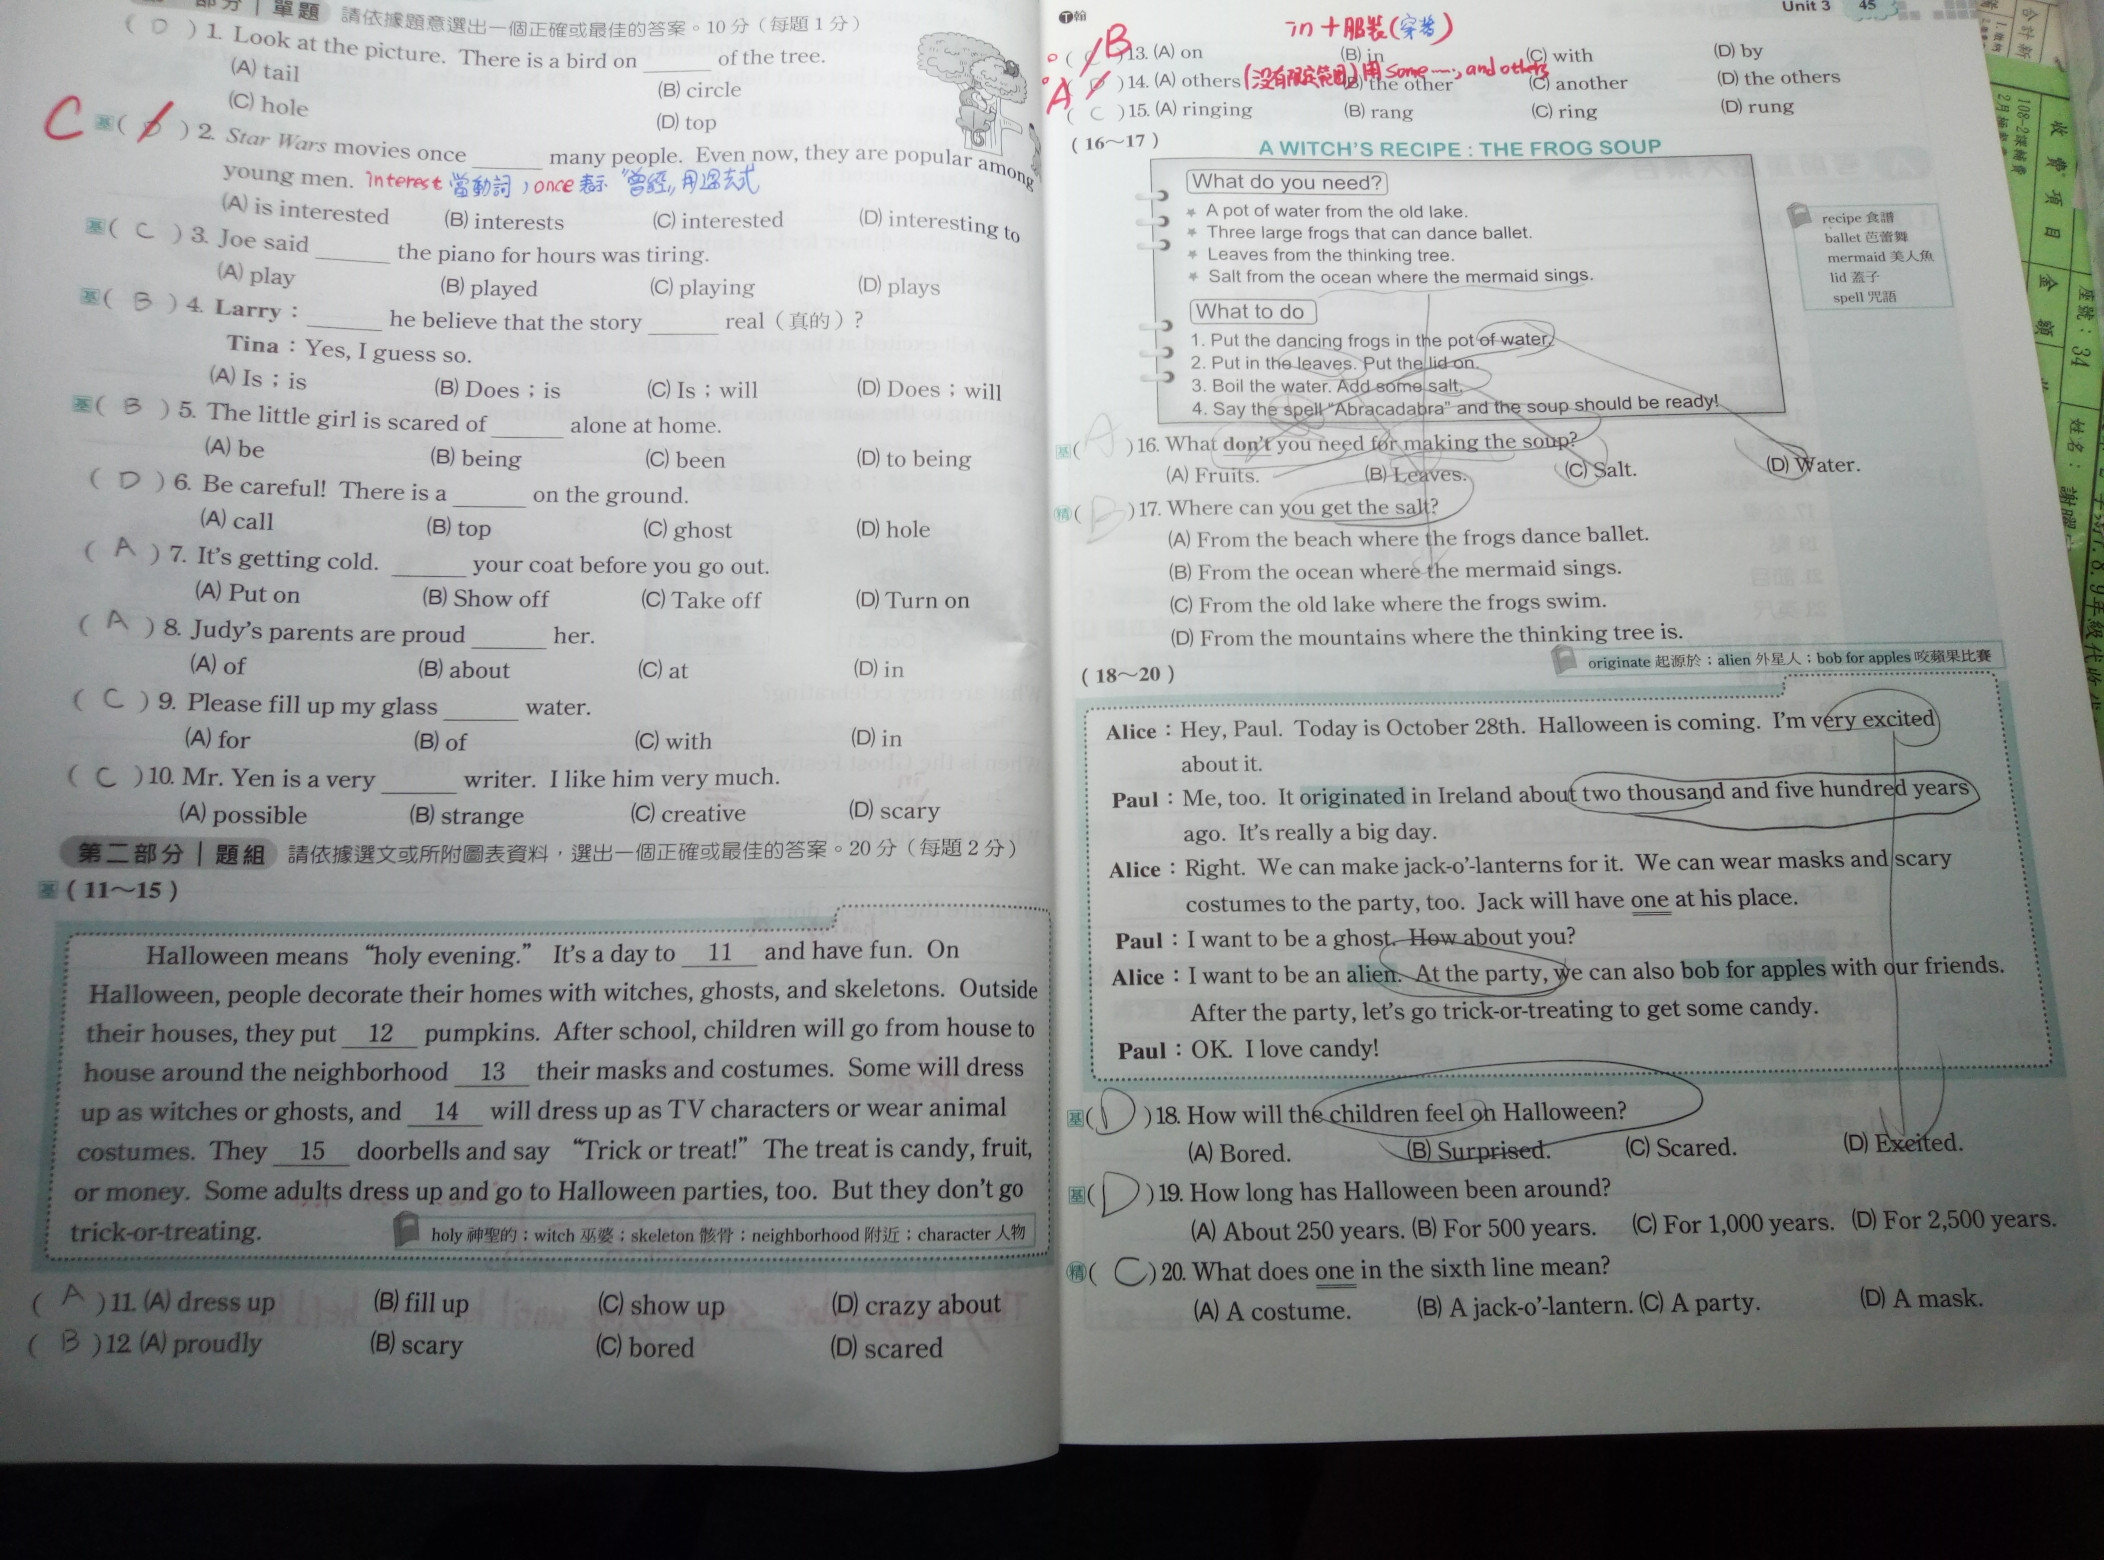 部分｜單題 請依據題意選出一個正確或最佳的答案。10分（每題1分）
( D ) 1. Look at the picture. There is a bird on ______ of the tree.
(A) tail (B) circle
(C) hole (D) top
C 基( ) 2. Star Wars movies once ______ many people. Even now, they are popular among
young men. interest 當動詞, once 表示 "曾經", 用過去式
(A) is interested (B) interests (C) interested (D) interesting to
基( C ) 3. Joe said ______ the piano for hours was tiring.
(A) play (B) played (C) playing (D) plays
基( B ) 4. Larry：______ he believe that the story ______ real（真的）?
Tina：Yes, I guess so.
(A) Is；is (B) Does；is (C) Is；will (D) Does；will
基( B ) 5. The little girl is scared of ______ alone at home.
(A) be (B) being (C) been (D) to being
( D ) 6. Be careful! There is a ______ on the ground.
(A) call (B) top (C) ghost (D) hole
( A ) 7. It's getting cold. ______ your coat before you go out.
(A) Put on (B) Show off (C) Take off (D) Turn on
( A ) 8. Judy's parents are proud ______ her.
(A) of (B) about (C) at (D) in
( C ) 9. Please fill up my glass ______ water.
(A) for (B) of (C) with (D) in
( C ) 10. Mr. Yen is a very ______ writer. I like him very much.
(A) possible (B) strange (C) creative (D) scary
第二部分｜題組 請依據選文或所附圖表資料，選出一個正確或最佳的答案。20分（每題2分）
基（11～15）
Halloween means “holy evening.” It's a day to 11 and have fun. On
Halloween, people decorate their homes with witches, ghosts, and skeletons. Outside
their houses, they put 12 pumpkins. After school, children will go from house to
house around the neighborhood 13 their masks and costumes. Some will dress
up as witches or ghosts, and 14 will dress up as TV characters or wear animal
costumes. They 15 doorbells and say “Trick or treat!” The treat is candy, fruit,
or money. Some adults dress up and go to Halloween parties, too. But they don't go
trick-or-treating.
holy 神聖的；witch 巫婆；skeleton 骸骨；neighborhood 附近；character 人物
( A ) 11. (A) dress up (B) fill up (C) show up (D) crazy about
( B ) 12. (A) proudly (B) scary (C) bored (D) scared
翰 Unit 3 45
in + 服裝(穿著)
( B ) 13. (A) on (B) in (C) with (D) by
A ( ) 14. (A) others (B) the other (C) another (D) the others
(沒有限定範圍) 用 some ……, and others
( C ) 15. (A) ringing (B) rang (C) ring (D) rung
（16～17）
A WITCH'S RECIPE : THE FROG SOUP
What do you need?
* A pot of water from the old lake.
* Three large frogs that can dance ballet.
* Leaves from the thinking tree.
* Salt from the ocean where the mermaid sings.
What to do
1. Put the dancing frogs in the pot of water.
2. Put in the leaves. Put the lid on.
3. Boil the water. Add some salt.
4. Say the spell “Abracadabra” and the soup should be ready!
recipe 食譜
ballet 芭蕾舞
mermaid 美人魚
lid 蓋子
spell 咒語
基( A ) 16. What don't you need for making the soup?
(A) Fruits. (B) Leaves. (C) Salt. (D) Water.
精( B ) 17. Where can you get the salt?
(A) From the beach where the frogs dance ballet.
(B) From the ocean where the mermaid sings.
(C) From the old lake where the frogs swim.
(D) From the mountains where the thinking tree is.
（18～20）
originate 起源於；alien 外星人；bob for apples 咬蘋果比賽
Alice：Hey, Paul. Today is October 28th. Halloween is coming. I'm very excited
about it.
Paul：Me, too. It originated in Ireland about two thousand and five hundred years
ago. It's really a big day.
Alice：Right. We can make jack-o'-lanterns for it. We can wear masks and scary
costumes to the party, too. Jack will have one at his place.
Paul：I want to be a ghost. How about you?
Alice：I want to be an alien. At the party, we can also bob for apples with our friends.
After the party, let's go trick-or-treating to get some candy.
Paul：OK. I love candy!
基( D ) 18. How will the children feel on Halloween?
(A) Bored. (B) Surprised. (C) Scared. (D) Excited.
基( D ) 19. How long has Halloween been around?
(A) About 250 years. (B) For 500 years. (C) For 1,000 years. (D) For 2,500 years.
精( C ) 20. What does one in the sixth line mean?
(A) A costume. (B) A jack-o'-lantern. (C) A party. (D) A mask.
收費項目 金額
座號：34 姓名：謝